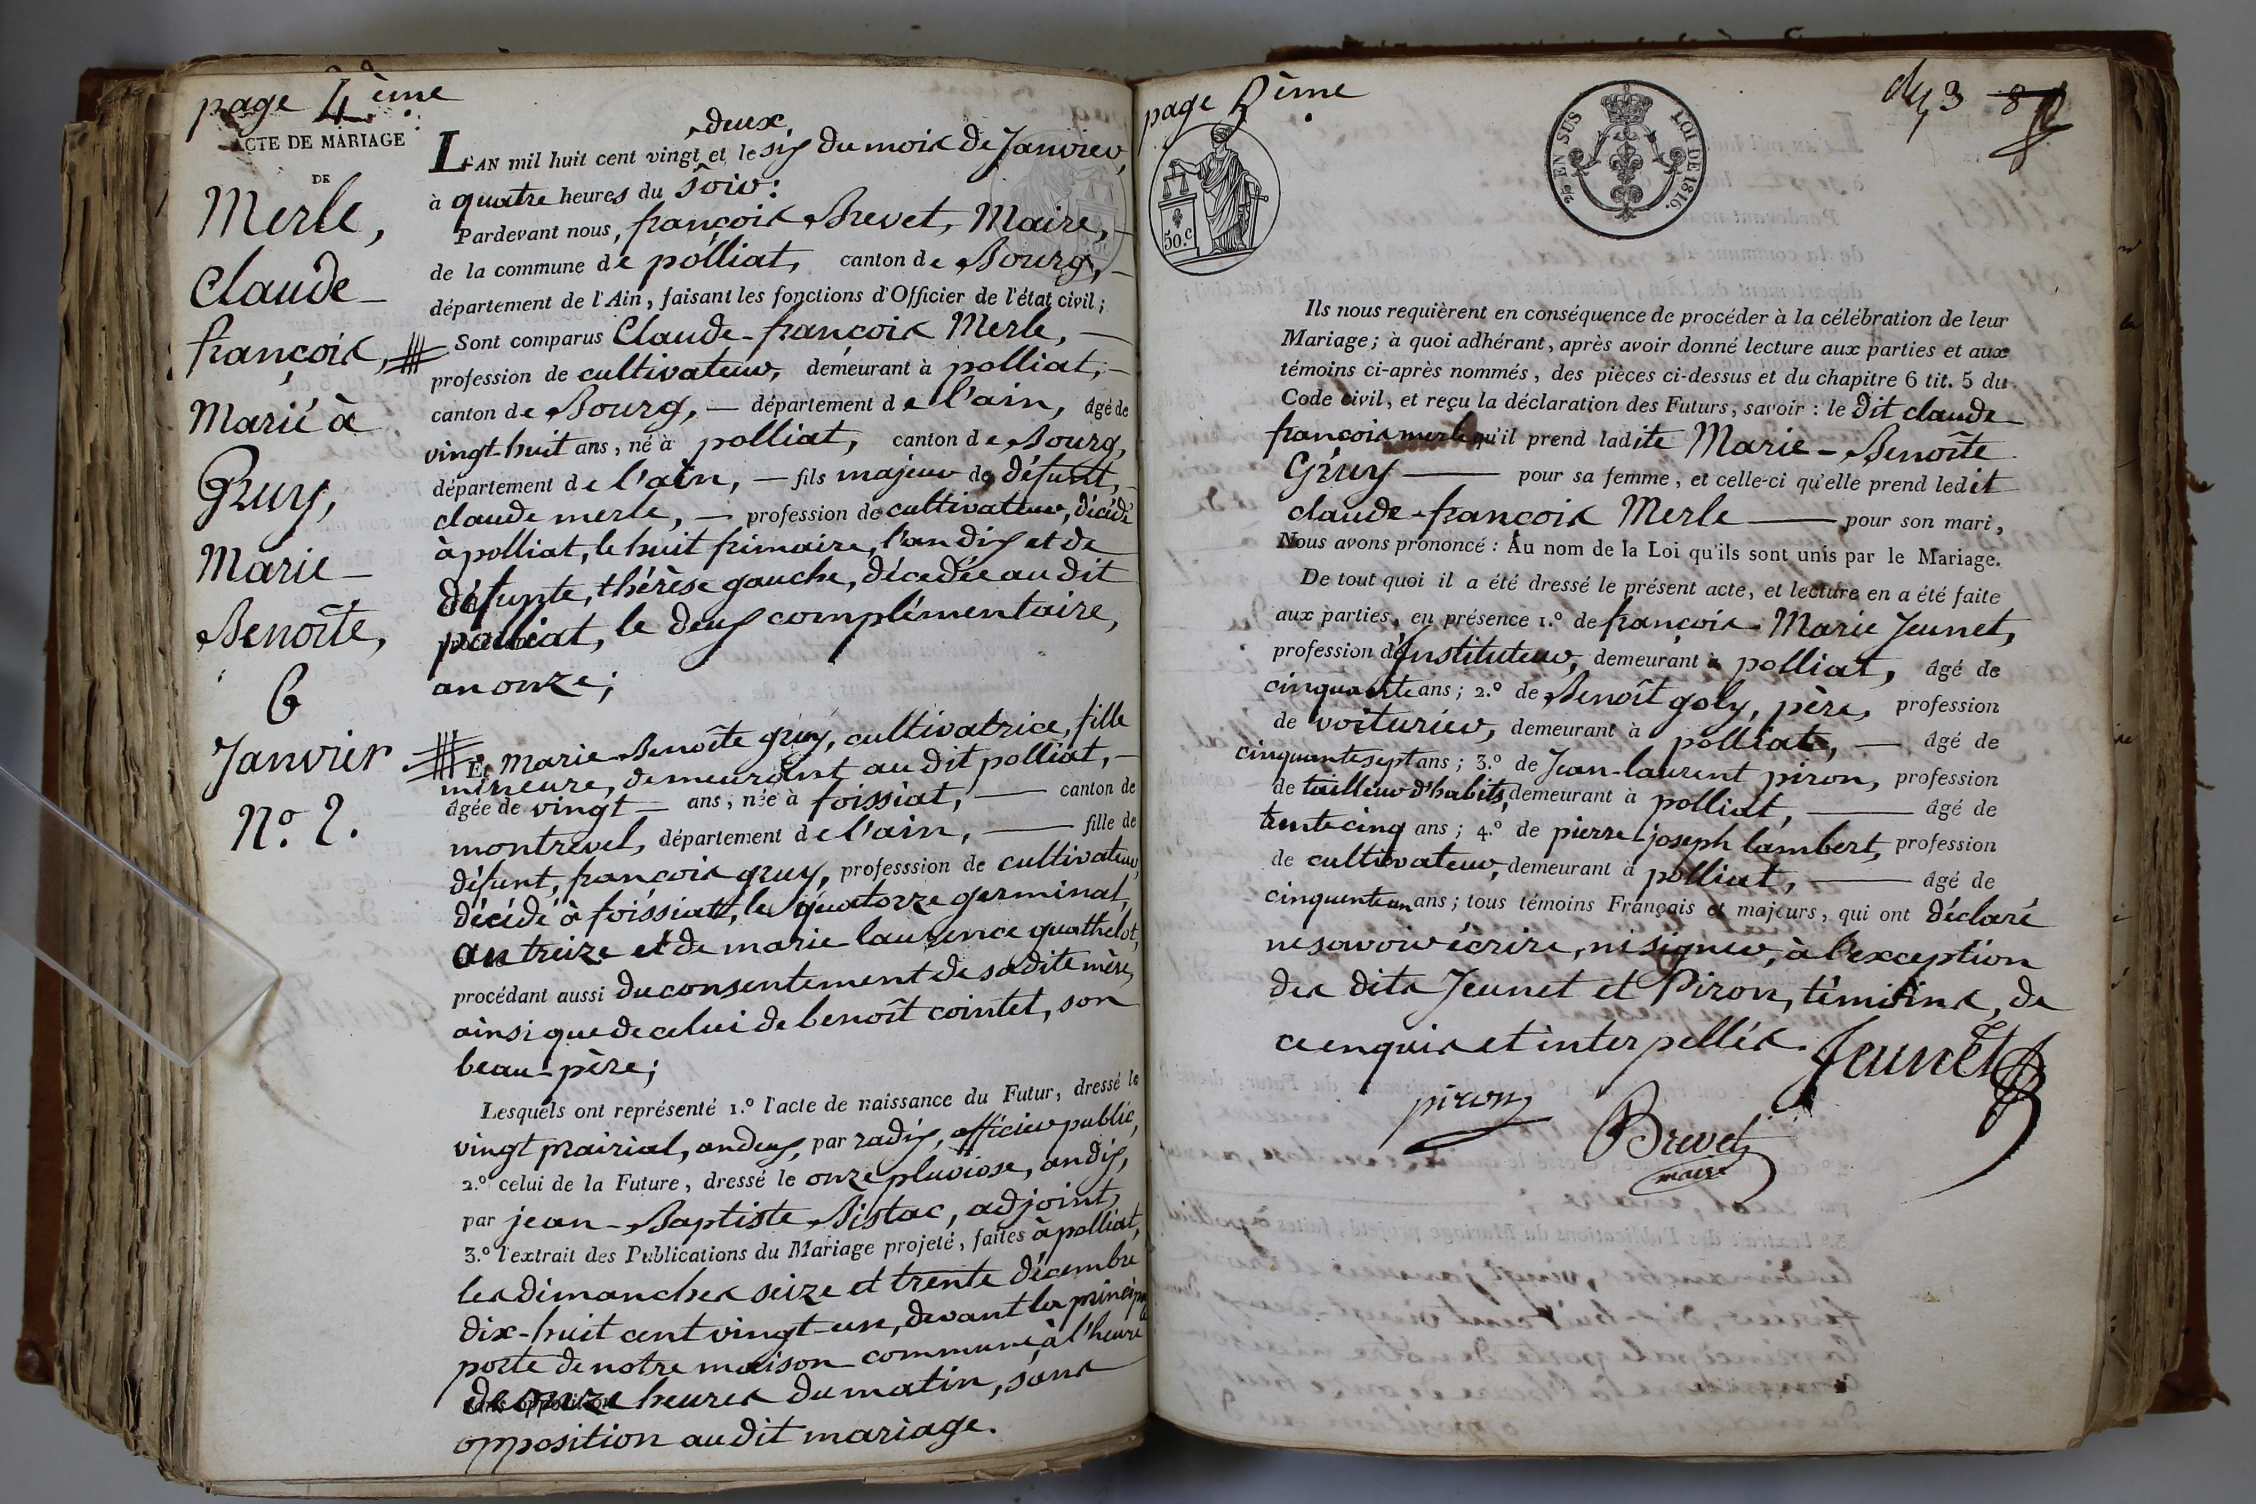 page 4ème
ACTE DE MARIAGE
DE
Merle,
Claude-
françois,
Marié à
Gruy,
Marie-
Benoîte,
6
Janvier
N.º 2.
deux
L'AN mil huit cent vingt et le six du mois de Janvier,
à quatre heures du sôir:
Pardevant nous, françois Brevet, Maire,
de la commune de polliat, canton de Bourg,
département de l'Ain, faisant les fonctions d'Officier de l'état civil;
Sont comparus Claude-françois Merle,
profession de cultivateur, demeurant à polliat,
canton de Bourg, département de l'ain, âgé de
vingt-huit ans, né à polliat, canton de Bourg,
département de l'ain, fils majeur de défunt,
claude merle, profession de cultivateur, décédé
à polliat, le huit frimaire, l'an dix et de
défunte, thérèse gauche, décedée au dit
polliat, le deux complémentaire,
an onze;
Et marie-Benoîte gruy, cultivatrice, fille
mineure, demeurant au dit polliat,
âgée de vingt ans, née à foissiat, canton de
montrevel, département de l'ain, fille de
défunt, françois gruy, professsion de cultivateur,
décédé à foissiatt, le quatorze germinal,
an treize et de marie laurence guathelot,
procédant aussi du consentement de sadite mère,
ainsi que de celui de benoît cointet, son
beau-père;
Lesquels ont représenté 1.º l'acte de naissance du Futur, dressé le
vingt prairial, an deux, par radix, officier public,
2.º celui de la Future, dressé le onze pluviose, an dix,
par jean-Baptiste Bistac, adjoint,
3.º l'extrait des Publications du Mariage projeté, faites à polliat,
les dimanches seize et trente décembre
dix-huit cent vingt-un, devant la principale
porte de notre maison commune, à l'heure
de onze heures du matin, sans
opposition au dit mariage.
page 5ème
50.c
2e EN SUS LOI DE 1816.
3 8
Ils nous requièrent en conséquence de procéder à la célébration de leur
Mariage; à quoi adhérant, après avoir donné lecture aux parties et aux
témoins ci-après nommés, des pièces ci-dessus et du chapitre 6 tit. 5 du
Code civil, et reçu la déclaration des Futurs, savoir: le dit claude
françois merle qu'il prend ladite Marie-Benoîte
Gruy pour sa femme, et celle-ci qu'elle prend ledit
claude-françois Merle pour son mari,
Nous avons prononcé: Au nom de la Loi qu'ils sont unis par le Mariage.
De tout quoi il a été dressé le présent acte, et lecture en a été faite
aux parties, en présence 1.º de françois-Marie Jeunet,
profession d'Instituteur, demeurant à polliat, âgé de
cinquante ans; 2.º de Benoît goly, père, profession
de voiturier, demeurant à polliat, âgé de
cinquante sept ans; 3.º de Jean-laurent piron, profession
de tailleur d'habits, demeurant à polliat, âgé de
trente cinq ans; 4.º de pierre-joseph lambert, profession
de cultivateur, demeurant à polliat, âgé de
cinquente un ans; tous témoins Français et majeurs, qui ont déclaré
ne savoir écrire, ni signer, à l'exception
des dits Jeunet et Piron, témoins, de
ce enquis et interpellés.
Jeunet
piron
Brevet
maire